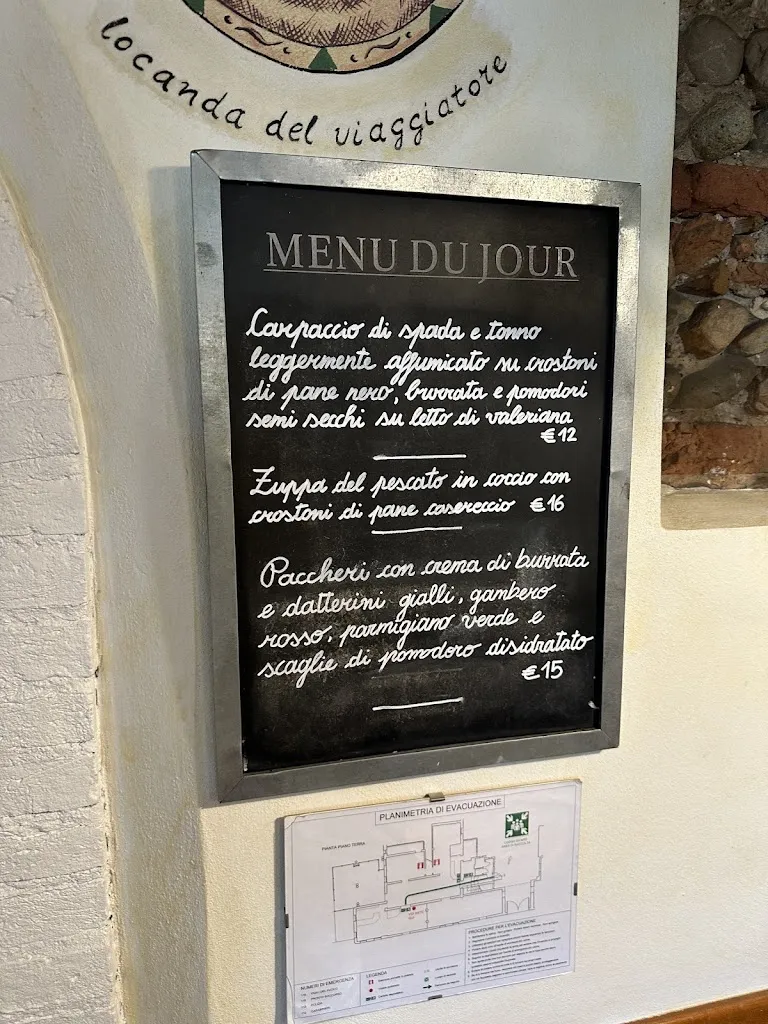 locanda del viaggiatore
MENU DU JOUR
Carpaccio di spada e tonno
leggermente affumicato su crostoni
di pane nero, burrata e pomodori
semi secchi su letto di valeriana
€12
Zuppa del pescato in coccio con
crostoni di pane casereccio €16
Paccheri con crema di burrata
e datterini gialli, gambero
rosso, parmigiano verde e
scaglie di pomodoro disidratato
€15
PLANIMETRIA DI EVACUAZIONE
PIANTA PIANO TERRA
PROCEDURE PER L'EVACUAZIONE
NUMERI DI EMERGENZA
LEGENDA